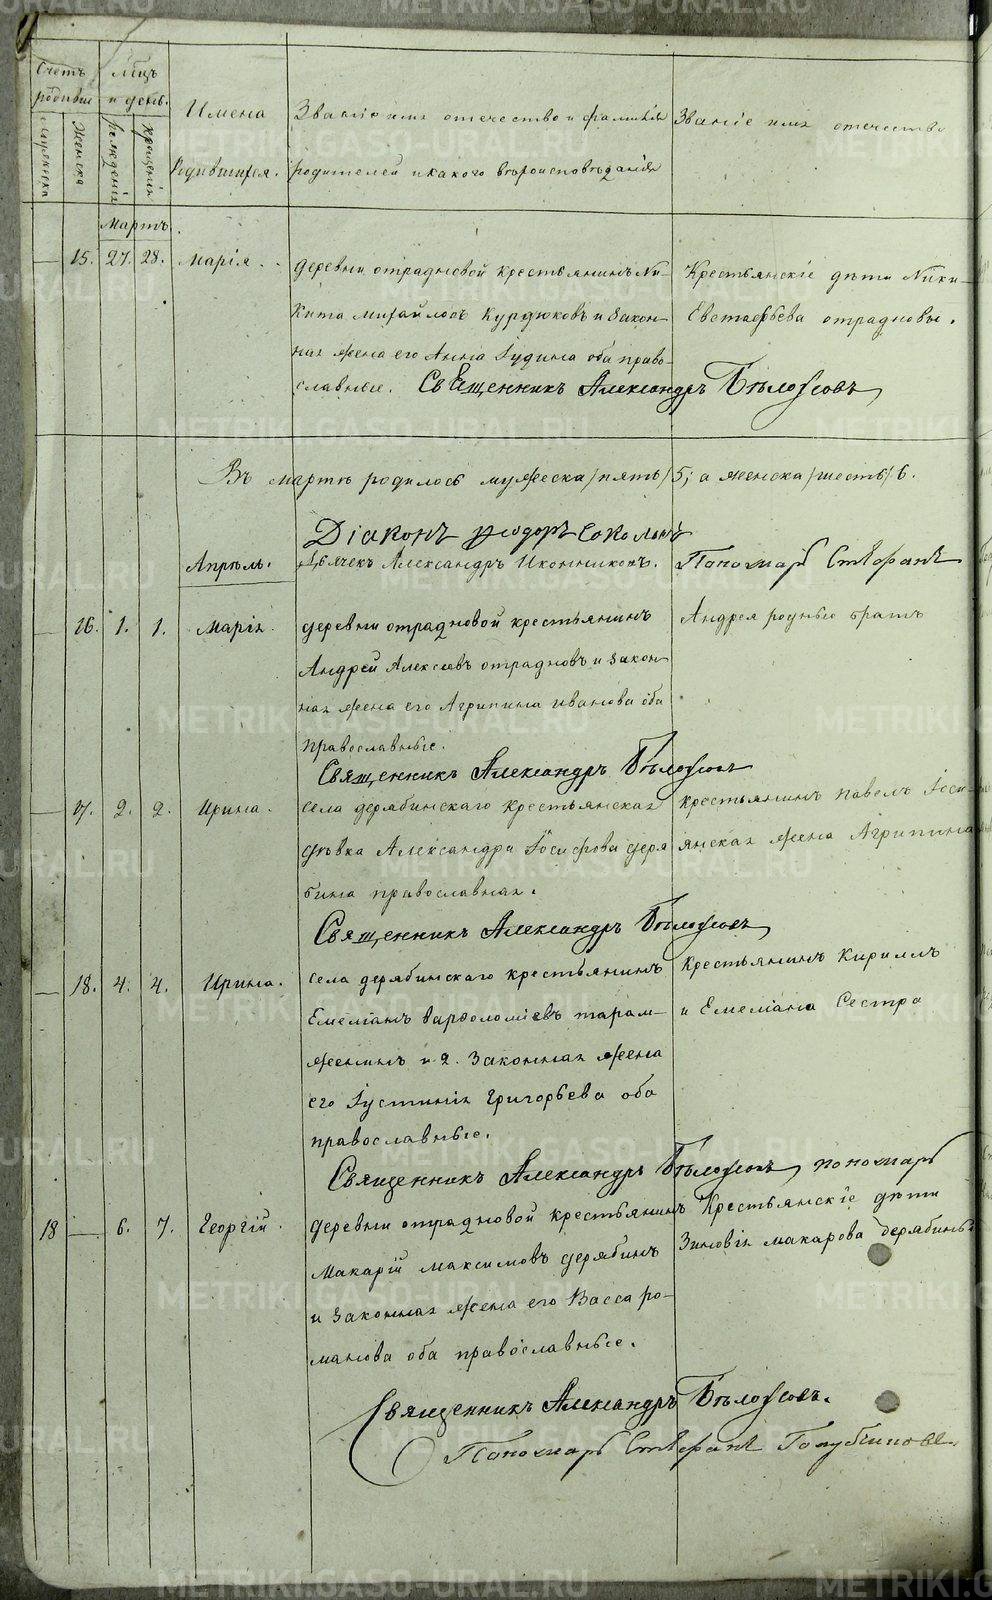 METRIKI.GASO-URAL.RU
Счетъ родивш. Мѣсцъ и день. Имена родившихся. Званіе имя отечество и фамилія родителей и какого вѣроисповѣданія Званіе имя отечество
мужеска женска рожденія крещенія
Мартъ.
15. 27. 28. Марія. деревни отрадновой крестьянинъ Ни- Крестьянскіе дѣти Ники-
кита михайловъ Курдюковъ и закон- Евстафьева отрадновы.
ная жена его Анна Іудина оба право-
славные. Священникъ Александръ Бѣлоусовъ
Въ мартѣ родилось мужеска /пять/ 5, а женска /шесть/ 6.
Діаконъ Ѳеодоръ Соколовъ
Апрѣль. Дьячекъ Александръ Иконниковъ. Пономарь Стефанъ
16. 1. 1. Марія. деревни отрадновой крестьянинъ Андрея родные братъ
Андрей Алексѣевъ отрадновъ и закон
ная жена его Агрипина иванова оба
православные.
Священникъ Александръ Бѣлоусовъ
17. 2. 2. Ирина. села дерябинскаго крестьянская крестьянинъ павелъ Іоси-
дѣвка Александра Іосифова деря янская жена Агрипина
бина православная.
Священникъ Александръ Бѣлоусовъ
18. 4. 4. Ирина. села дерябинскаго крестьянинъ Крестьянинъ Кириллъ
Емеліанъ варѳоломѣевъ тарам- и Емеліана Сестра
женинъ и 2. законная жена
его Іустинія Григорьева оба
православные.
Священникъ Александръ Бѣлоусовъ пономарь
18 6. 7. Георгій. деревни отрадновой крестьянинъ Крестьянскіе дѣти
Макарій максимовъ дерябинъ Зиновія макарова дерябины
и законная жена его Васса ро-
манова оба православные.
Священникъ Александръ Бѣлоусовъ.
Пономарь Стефанъ